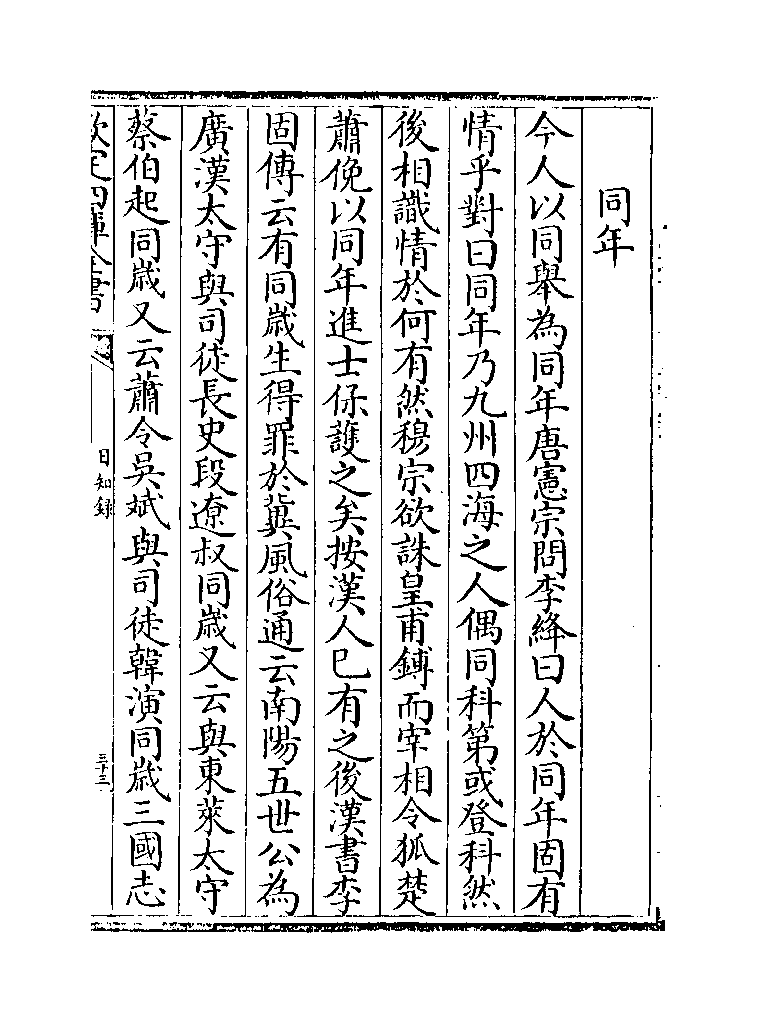 同年
今人以同舉為同年唐憲宗問李絳曰人於同年固有
情乎對曰同年乃九州四海之人偶同科第或登科然
後相識情於何有然穆宗欲誅皇甫鎛而宰相令狐楚
蕭俛以同年進士保護之矣按漢人已有之後漢書李
固傳云有同歲生得罪於冀風俗通云南陽五世公為
廣漢太守與司徒長史段遼叔同歲又云與東萊太守
蔡伯起同歲又云蕭令吳斌與司徒韓演同歲三國志
欽定四庫全書
日知錄
三十三